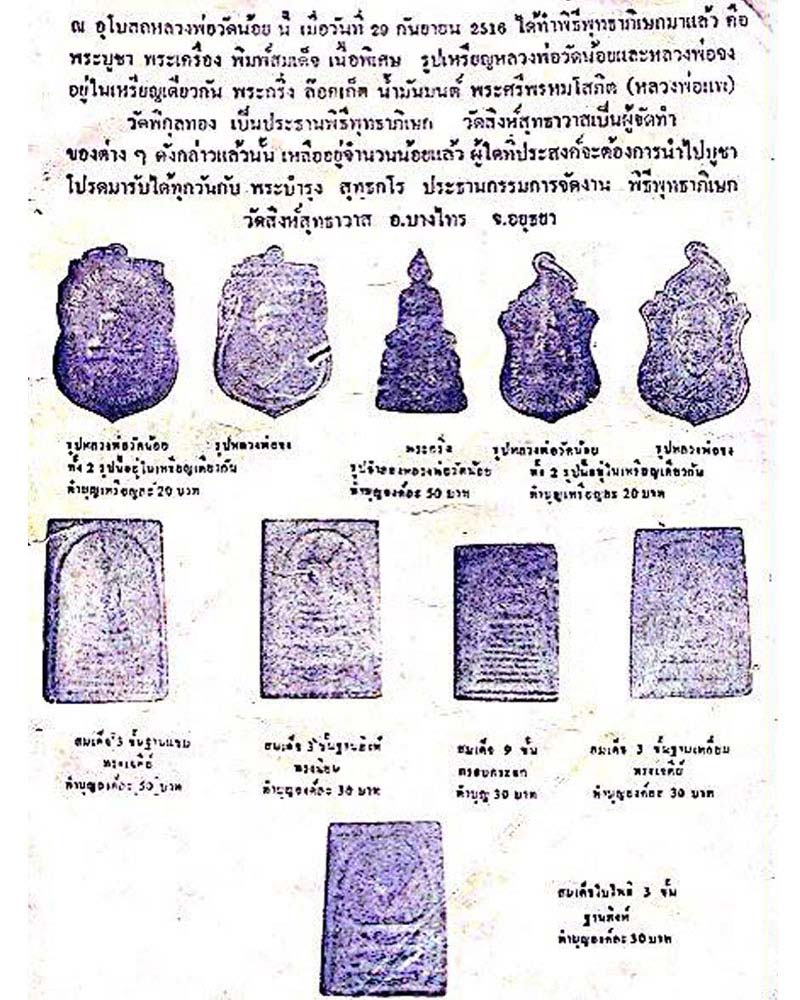 ณ อุโบสถหลวงพ่อวัดน้อย นี้ เมื่อวันที่ 29 กันยายน 2516 ได้ทำพิธีพุทธาภิเษกมาแล้ว คือ
พระบูชา พระเครื่อง พิมพ์สมเด็จ เนื้อพิเศษ รูปเหรียญหลวงพ่อวัดน้อยและหลวงพ่อจง
อยู่ในเหรียญเดียวกัน พระกริ่ง ล๊อกเก็ต น้ำมันมนต์ พระศรีพรหมโสภิต (หลวงพ่อแพ)
วัดพิกุลทอง เป็นประธานพิธีพุทธาภิเษก วัดสิงห์สุทธาวาสเป็นผู้จัดทำ
ของต่าง ๆ ดังกล่าวแล้วนั้น เหลืออยู่จำนวนน้อยแล้ว ผู้ใดที่ประสงค์จะต้องการนำไปบูชา
โปรดมารับได้ทุกวันกับ พระบำรุง สุทธกโร ประธานกรรมการจัดงาน พิธีพุทธาภิเษก
วัดสิงห์สุทธาวาส อ.บางไทร จ.อยุธยา
รูปหลวงพ่อวัดน้อย รูปหลวงพ่อจง
ทั้ง 2 รูปนี้อยู่ในเหรียญเดียวกัน
ทำบุญเหรียญละ 20 บาท
พระกริ่ง
รูปจำลองหลวงพ่อวัดน้อย
ทำบุญองค์ละ 50 บาท
รูปหลวงพ่อวัดน้อย รูปหลวงพ่อจง
ทั้ง 2 รูปนี้อยู่ในเหรียญเดียวกัน
ทำบุญเหรียญละ 20 บาท
สมเด็จ 3 ชั้นฐานแซม
ทรงเจดีย์
ทำบุญองค์ละ 50 บาท
สมเด็จ 3 ชั้นฐานสิงห์
ทรงนิยม
ทำบุญองค์ละ 30 บาท
สมเด็จ 9 ชั้น
กรอบกระจก
ทำบุญ 30 บาท
สมเด็จ 3 ชั้นฐานเหลี่ยม
ทรงเจดีย์
ทำบุญองค์ละ 30 บาท
สมเด็จใบโพธิ์ 3 ชั้น
ฐานสิงห์
ทำบุญองค์ละ 30 บาท